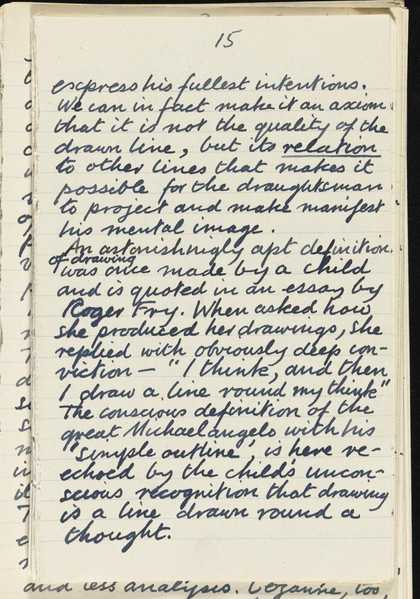 15
express his fullest intentions.
We can in fact make it an axiom
that it is not the quality of the
drawn line, but its relation
to other lines that makes it
possible for the draughtsman
to project and make manifest
his mental image.
An astonishingly apt definition
of drawing
was once made by a child
and is quoted in an essay by
Roger Fry. When asked how
she produced her drawings, she
replied with obviously deep con-
viction – "I think, and then
I draw a line round my think"
The conscious definition of the
great Michaelangelo with his
"simple outline", is here re-
echoed by the child's uncon-
scious recognition that drawing
is a line drawn round a
thought.
and less analysis. Cezanne, too,